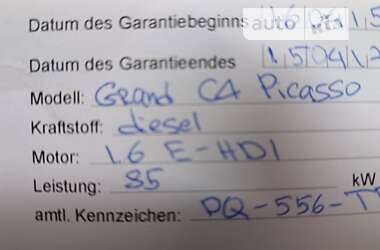 Datum des Garantiebeginns auto
Datum des Garantieendes 15041
Modell: Grand C4 Picasso
Kraftstoff: diesel
Motor: 1.6 E-HDI
Leistung: 85 kW
amtl. Kennzeichen: PQ-556-T